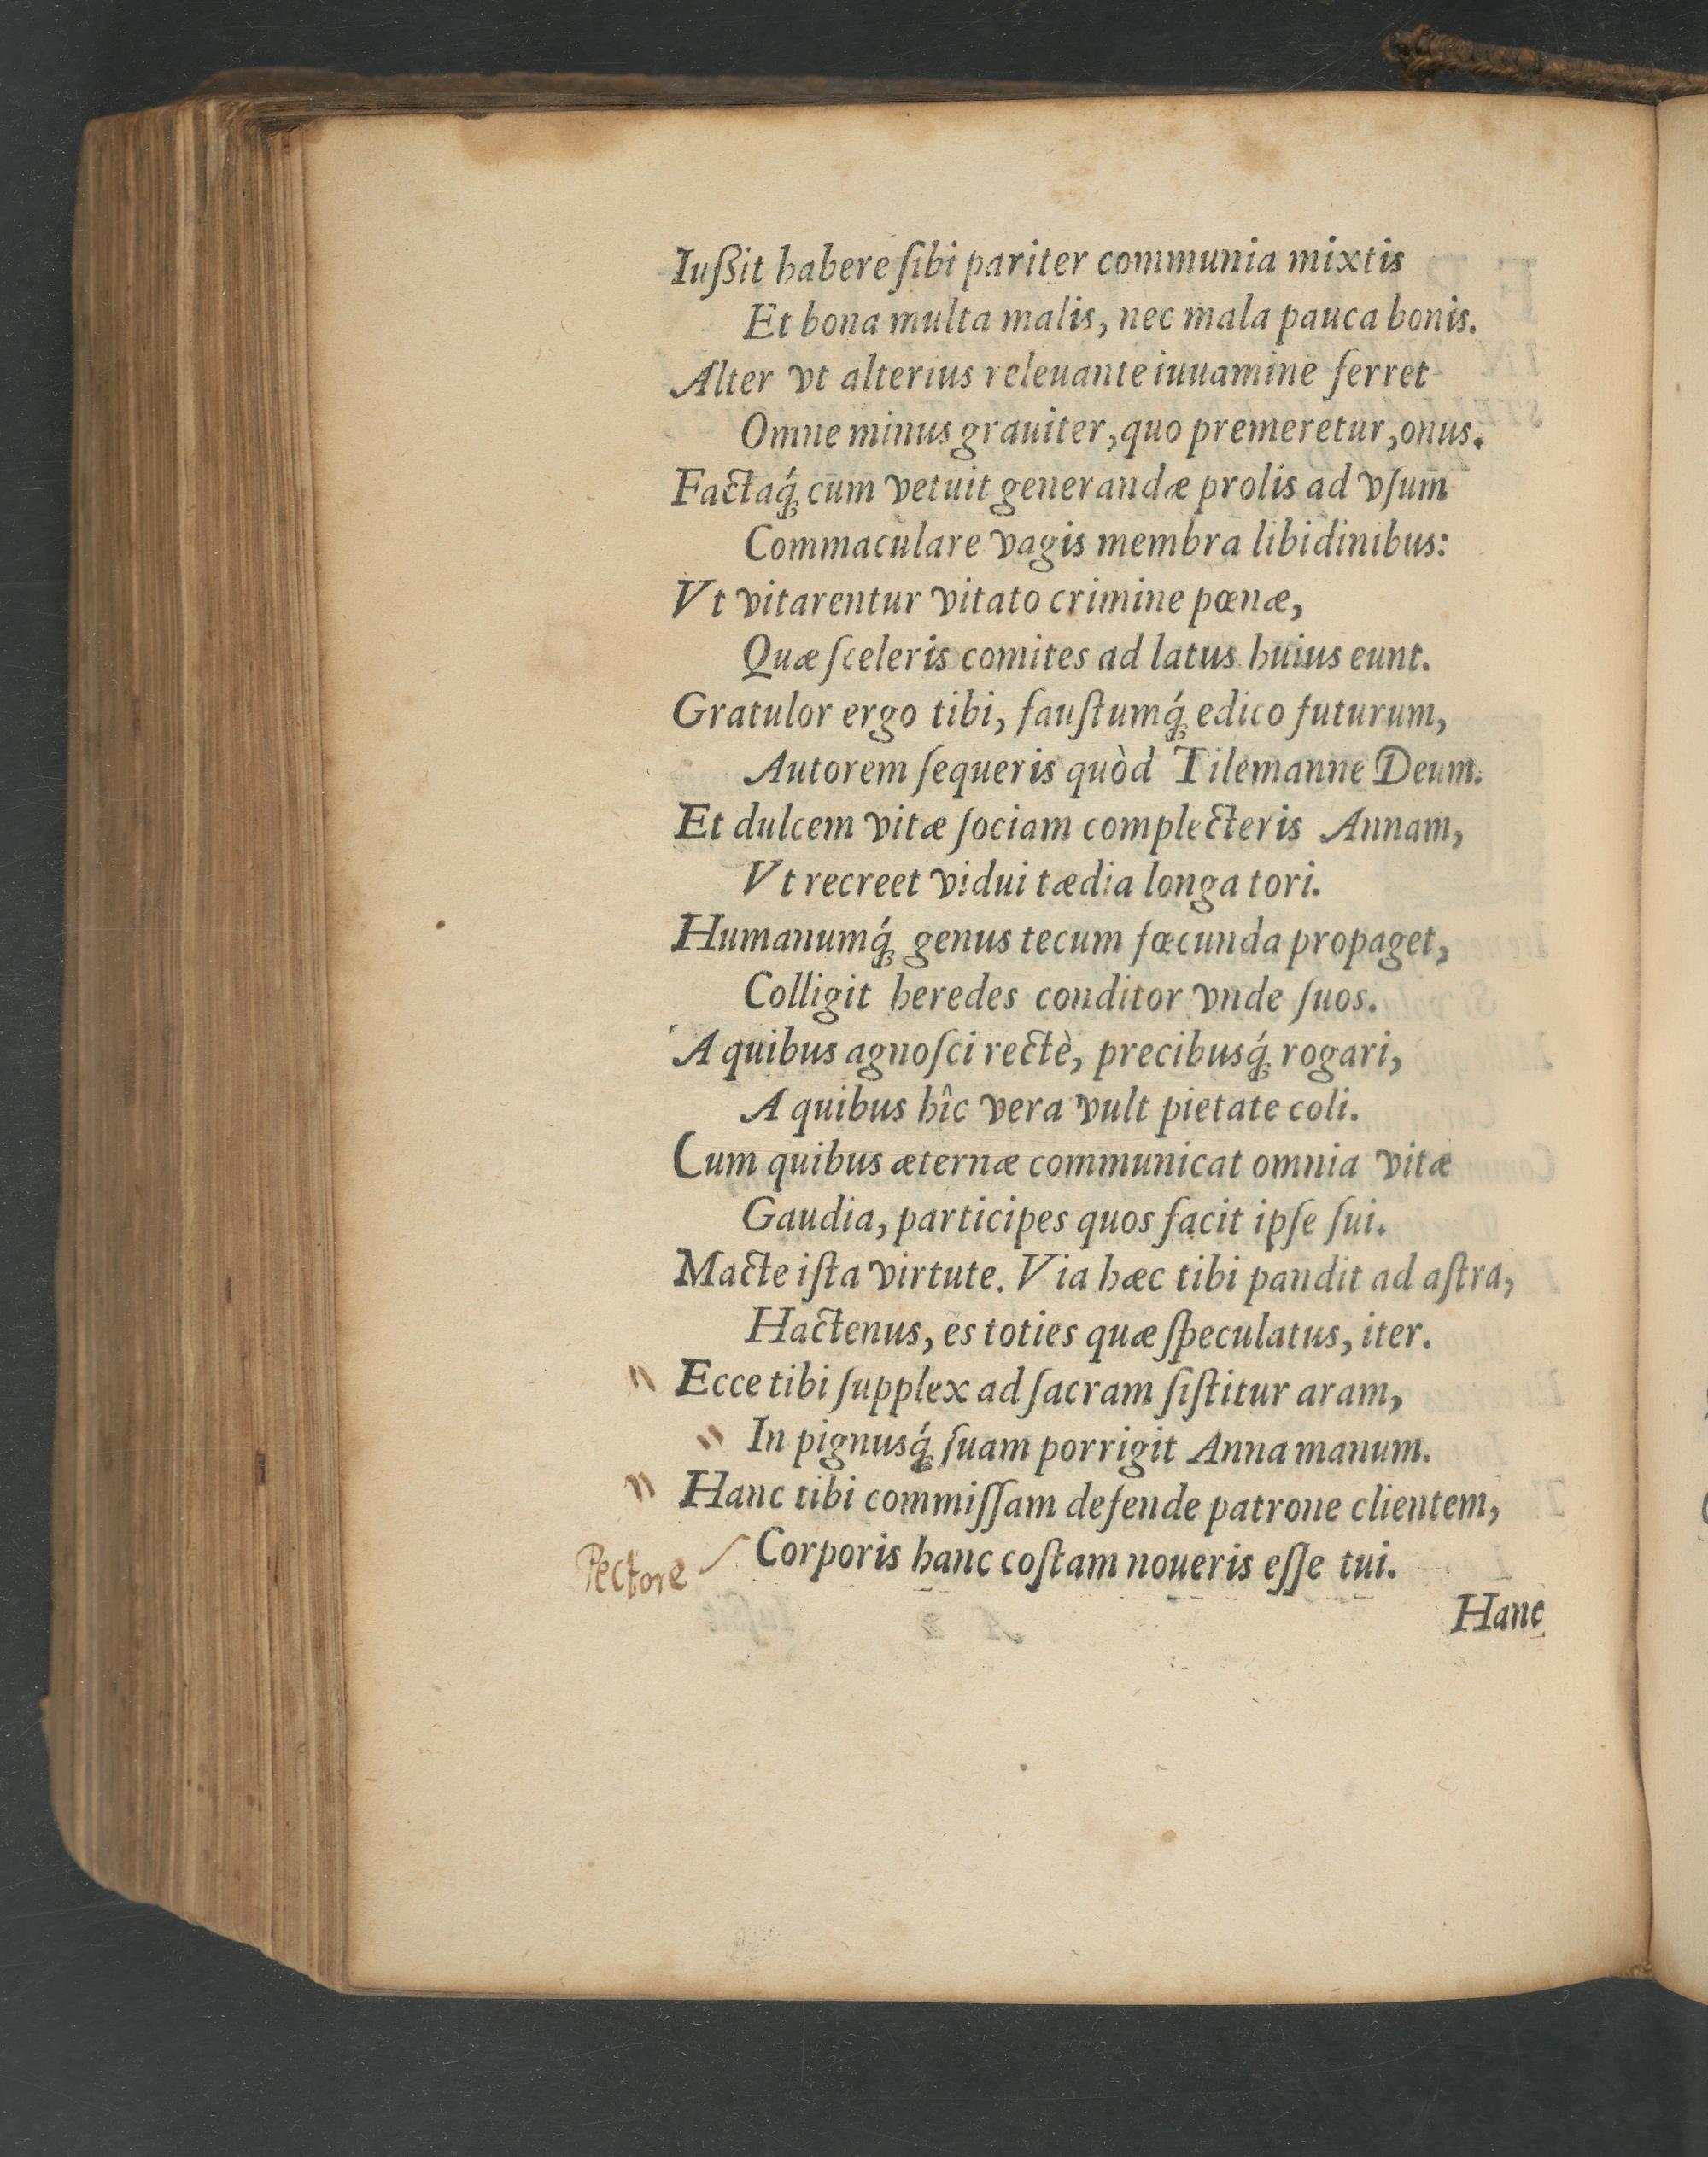 Iußit habere ſibi pariter communia mixtis
Et bona multa malis, nec mala pauca bonis.
Alter vt alterius releuante iuuamine ferret
Omne minus grauiter, quo premeretur, onus.
Factaq́; cum vetuit generandæ prolis ad vſum
Commaculare vagis membra libidinibus:
Vt vitarentur vitato crimine pœnæ,
Quæ ſceleris comites ad latus huius eunt.
Gratulor ergo tibi, fauſtumq́; edico futurum,
Autorem ſequeris quòd Tilemanne Deum.
Et dulcem vitæ ſociam complecteris Annam,
Vt recreet vidui tædia longa tori.
Humanumq́; genus tecum fœcunda propaget,
Colligit heredes conditor vnde ſuos.
A quibus agnoſci rectè, precibusq́; rogari,
A quibus hîc vera vult pietate coli.
Cum quibus æternæ communicat omnia vitæ
Gaudia, participes quos facit ipſe ſui.
Macte iſta virtute. Via hæc tibi pandit ad aſtra,
Hactenus, es toties quæ ſpeculatus, iter.
" Ecce tibi ſupplex ad ſacram ſiſtitur aram,
" In pignusq́; ſuam porrigit Anna manum.
" Hanc tibi commiſſam defende patrone clientem,
Pectore Corporis hanc coſtam noueris eſſe tui.
Hanc